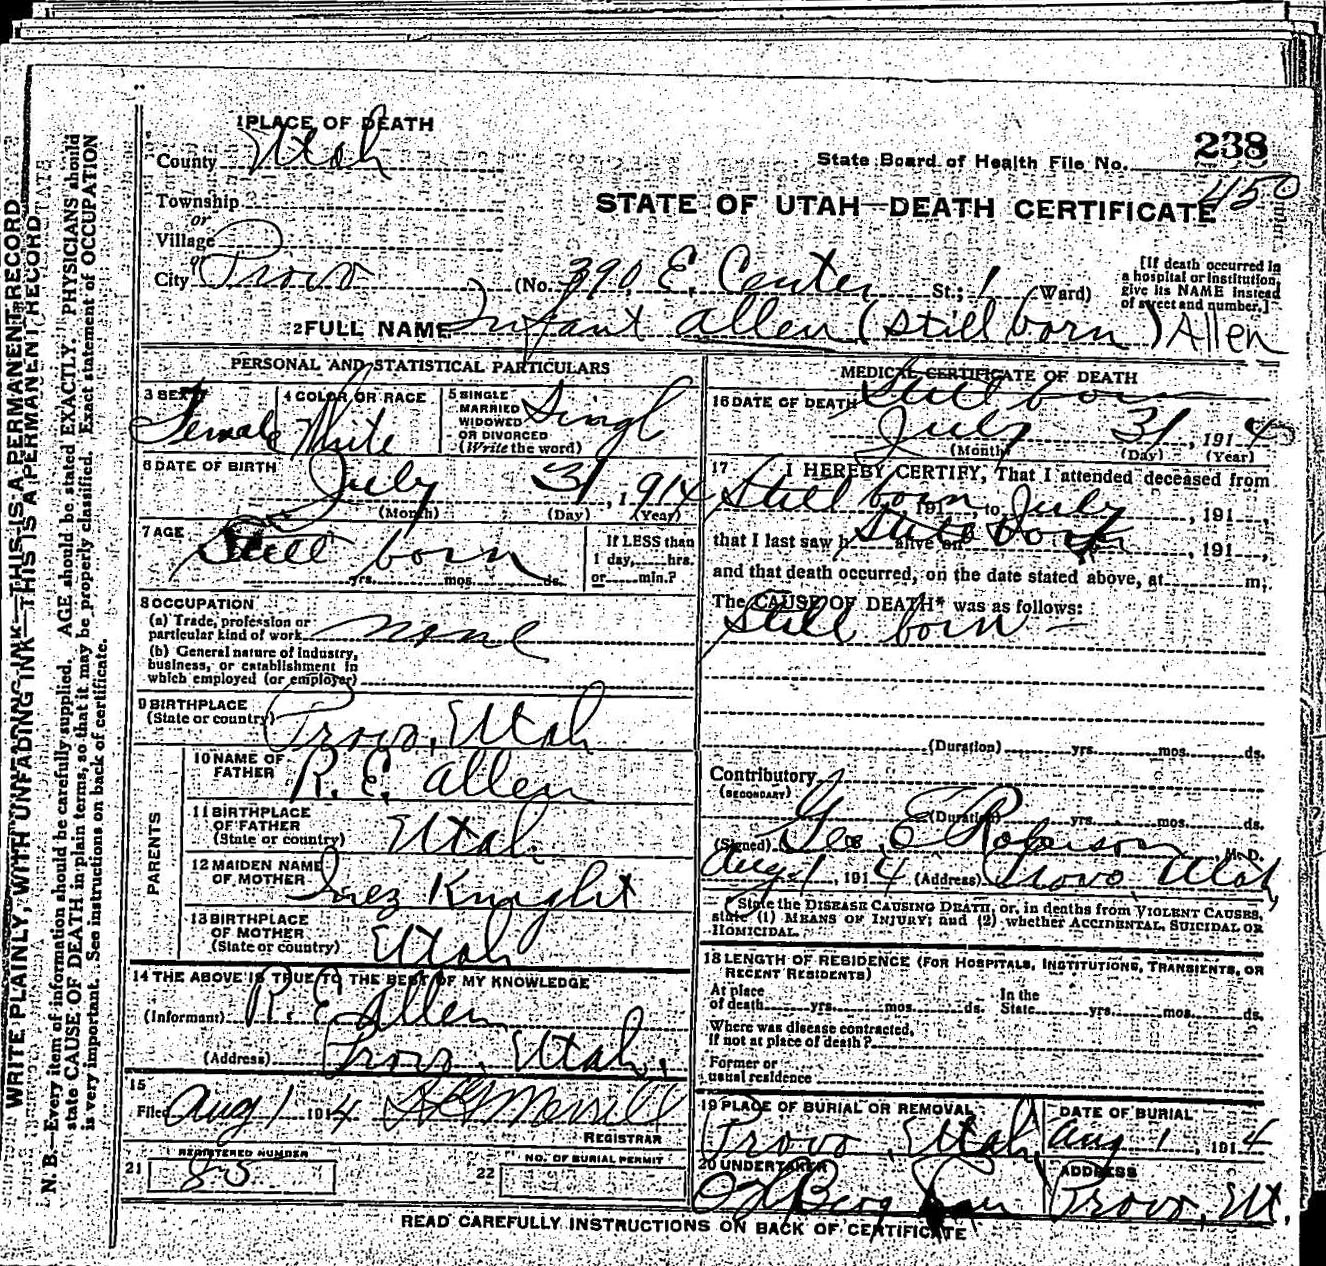 WRITE PLAINLY, WITH UNFADING INK—THIS IS A PERMANENT RECORD
N. B.—Every item of information should be carefully supplied. AGE should be stated EXACTLY. PHYSICIANS should
state CAUSE OF DEATH in plain terms, so that it may be properly classified. Exact statement of OCCUPATION
is very important. See instructions on back of certificate.
1 PLACE OF DEATH
County Utah
State Board of Health File No. 238
450
Township
or
Village
or
City Provo
STATE OF UTAH—DEATH CERTIFICATE
(No. 390 E. Center St.; 1 Ward)
[If death occurred in
a hospital or institution,
give its NAME instead
of street and number.]
2 FULL NAME Infant Allen (Still born) Allen
PERSONAL AND STATISTICAL PARTICULARS
3 SEX Female
4 COLOR OR RACE White
5 SINGLE
MARRIED
WIDOWED
OR DIVORCED
(Write the word) Singl
6 DATE OF BIRTH July 31, 1914
(Month) (Day) (Year)
7 AGE Still born
yrs. mos. ds.
If LESS than
1 day, hrs.
or min.?
8 OCCUPATION
(a) Trade, profession or
particular kind of work none
(b) General nature of industry,
business, or establishment in
which employed (or employer)
9 BIRTHPLACE
(State or country) Provo, Utah
PARENTS
10 NAME OF
FATHER R. E. Allen
11 BIRTHPLACE
OF FATHER
(State or country) Utah
12 MAIDEN NAME
OF MOTHER Inez Knight
13 BIRTHPLACE
OF MOTHER
(State or country) Utah
14 THE ABOVE IS TRUE TO THE BEST OF MY KNOWLEDGE
(Informant) R. E. Allen
(Address) Provo, Utah.
15
Filed Aug 1 1914 Merrill
REGISTRAR
REGISTERED NUMBER
21 85
NO. OF BURIAL PERMIT
22
MEDICAL CERTIFICATE OF DEATH
Still born
16 DATE OF DEATH
July 31, 1914
(Month) (Day) (Year)
17 I HEREBY CERTIFY, That I attended deceased from
Still born, 191 , to July, 191 ,
that I last saw h alive on Still born, 191 ,
and that death occurred, on the date stated above, at m.
The CAUSE OF DEATH* was as follows:
Still born —
(Duration) yrs. mos. ds.
Contributory
(SECONDARY)
(Duration) yrs. mos. ds.
(Signed) Geo. E. Roberson, M. D.
Aug 1, 1914 (Address) Provo Utah
State the DISEASE CAUSING DEATH, or, in deaths from VIOLENT CAUSES,
state (1) MEANS OF INJURY; and (2) whether ACCIDENTAL, SUICIDAL OR
HOMICIDAL.
18 LENGTH OF RESIDENCE (FOR HOSPITALS, INSTITUTIONS, TRANSIENTS, OR
RECENT RESIDENTS)
At place
of death yrs. mos. ds.
In the
State yrs. mos. ds.
Where was disease contracted,
if not at place of death?
Former or
usual residence
19 PLACE OF BURIAL OR REMOVAL
Provo, Utah
DATE OF BURIAL
Aug 1, 1914
20 UNDERTAKER
Berg
ADDRESS
Provo, Ut.
READ CAREFULLY INSTRUCTIONS ON BACK OF CERTIFICATE